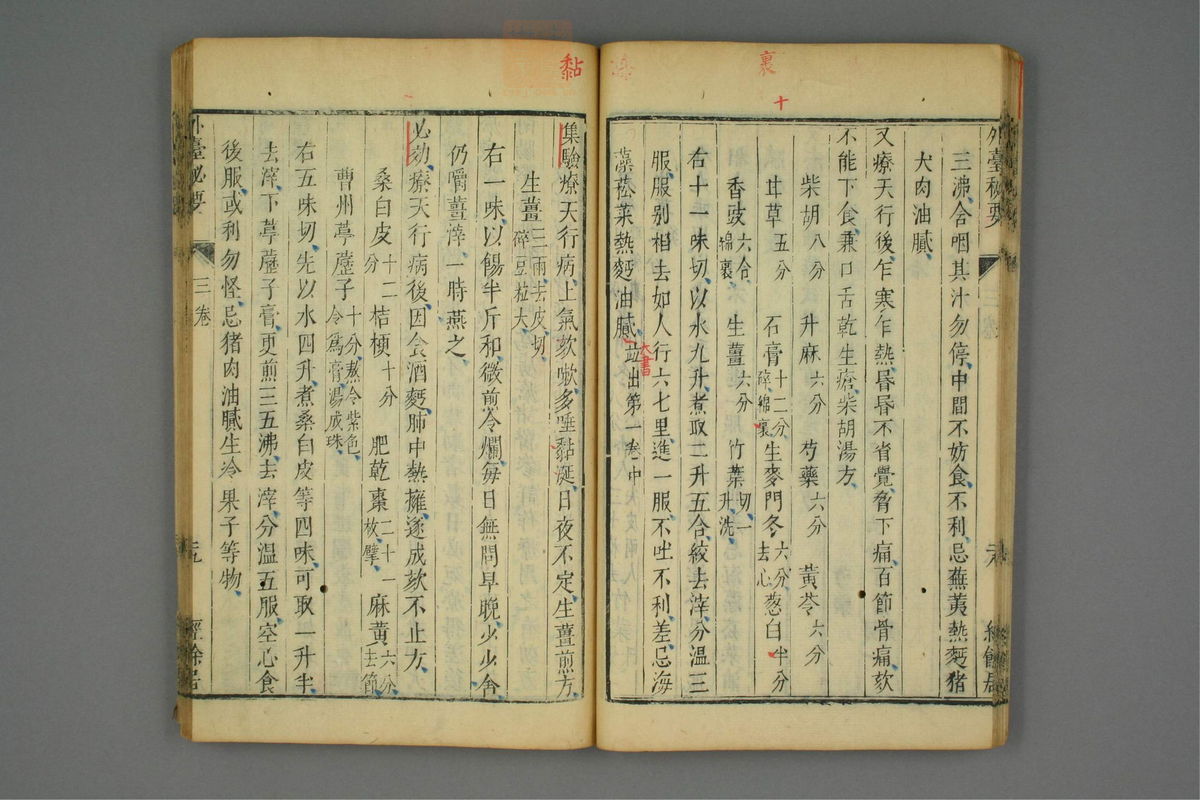 裏
十
外臺秘要
三沸合咽其汁勿停中間不妨食不利忌蕪荑熱麫猪
犬肉油膩
又療天行後乍寒乍熱昏昏不省覺脅下痛百節骨痛欬
不能下食兼口舌乾生瘡柴胡湯方
柴胡八分 升麻六分 芍藥六分 黃芩六分
甘草五分 石膏十二分碎綿裹 生麥門冬六分去心 葱白半分
香豉六合綿裹 生薑六分 竹葉切一升洗
右十一味切以水九升煮取二升五合絞去滓分温三
服服别相去如人行六七里進一服不吐不利差忌海
藻菘菜熱麫油膩並出第一卷中
大書
黏
集驗療天行病上氣欬嗽多唾黏涎日夜不定生薑煎方
生薑三兩去皮切碎豆粒大
右一味以餳半斤和微煎令爛每日無問早晚少少含
仍嚼薑滓一時燕之
必効療天行病後因食酒麫肺中熱擁遂成欬不止方
桑白皮十二分 桔梗十分 肥乾棗二十一枚擘 麻黃六分去節
曹州葶藶子十分熬令紫色令爲膏湯成珠
右五味切先以水四升煮桑白皮等四味可取一升半
去滓下葶藶子膏更煎三五沸去滓分温五服空心食
後服或利勿怪忌猪肉油膩生冷果子等物
外臺秘要
三卷
經餘居